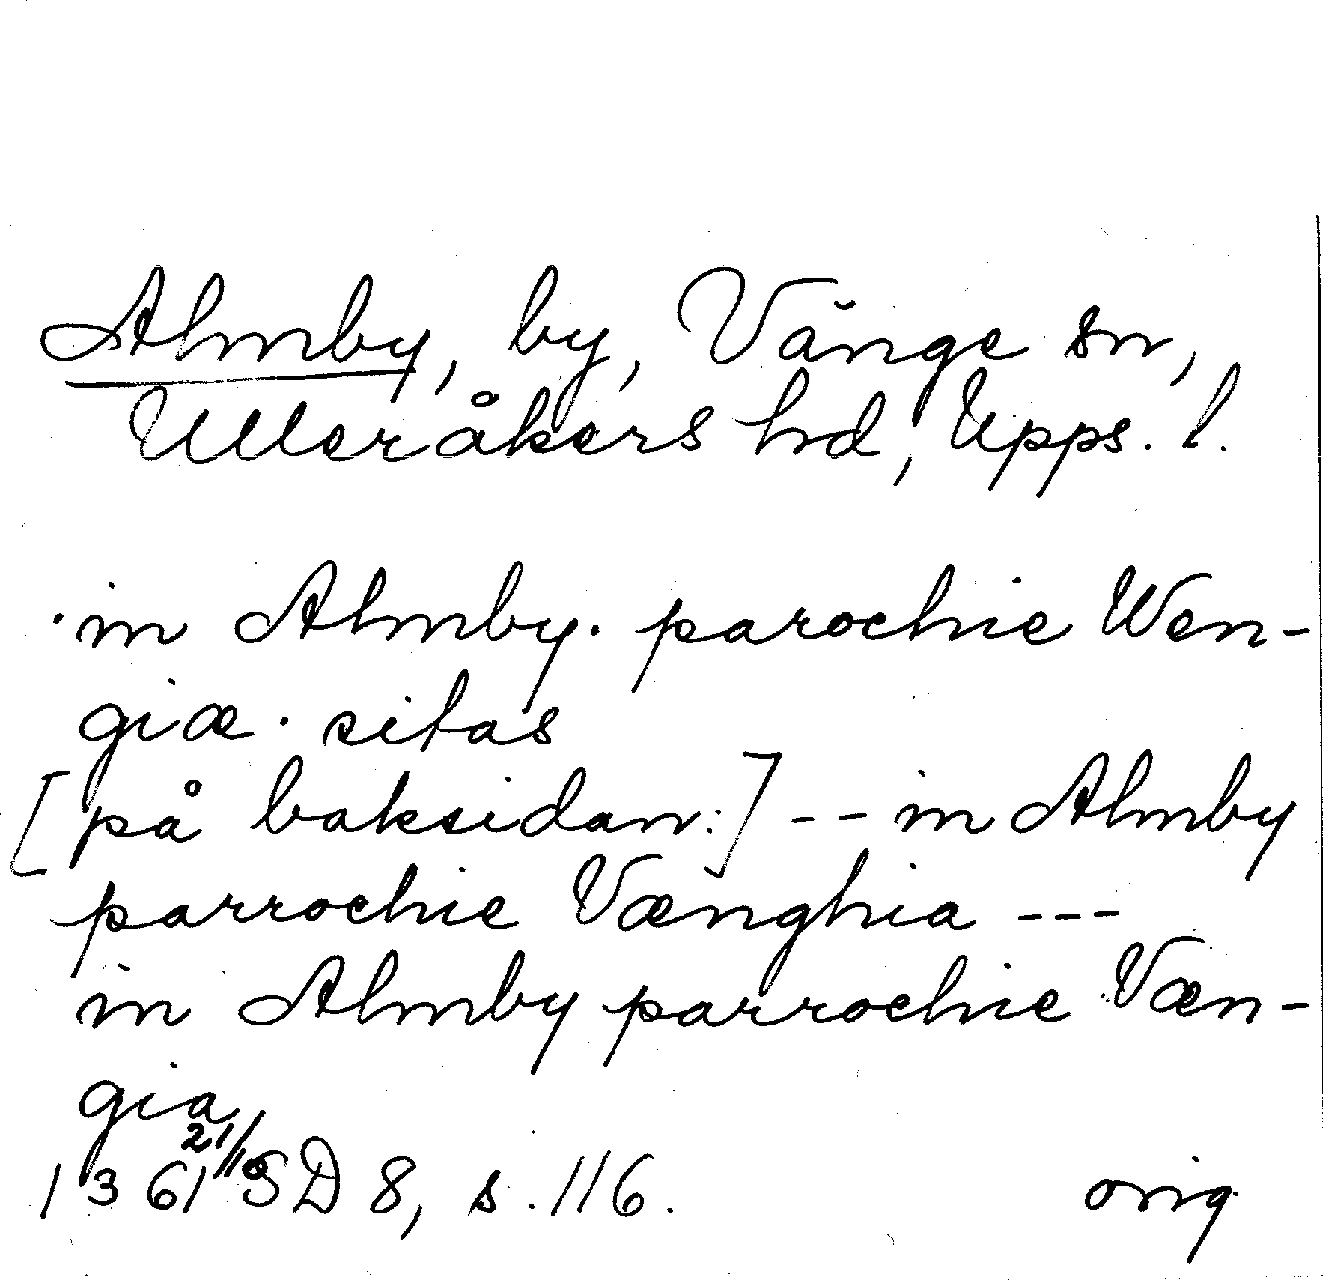 Almby, by, Vänge sn,
Ulleråkers hd, Upps. l.
·in Almby· parochie Wen-
giæ · sitas
[på baksidan:] -- in Almby
parrochie Vænghia ---
in Almby parrochie Væn-
gia
1361 21/10 SD 8, s. 116. orig